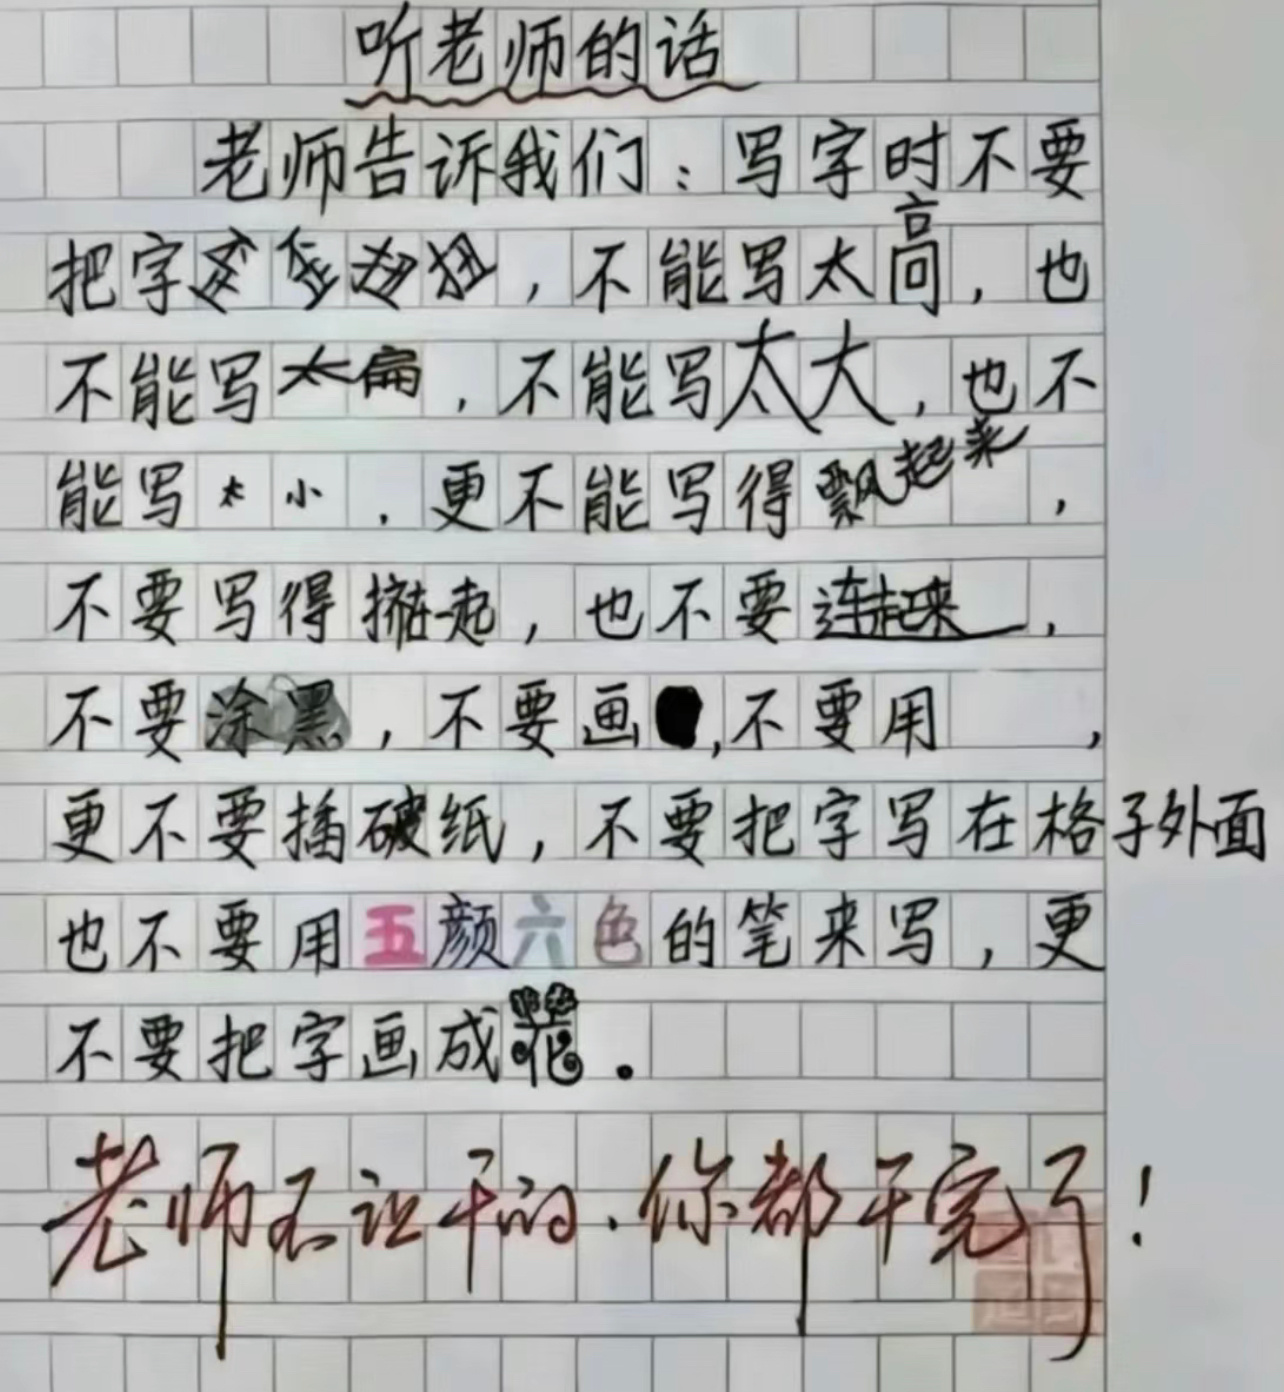 听老师的话
老师告诉我们：写字时不要
把字歪歪扭扭，不能写太高，也
不能写太扁，不能写太大，也不
能写太小．更不能写得飘起来，
不要写得挤在一起，也不要连起来，
不要涂黑，不要画，不要用，
更不要插破纸，不要把字写在格子外面
也不要用五颜六色的笔来写，更
不要把字画成花．
老师不让干的．你都干完了！